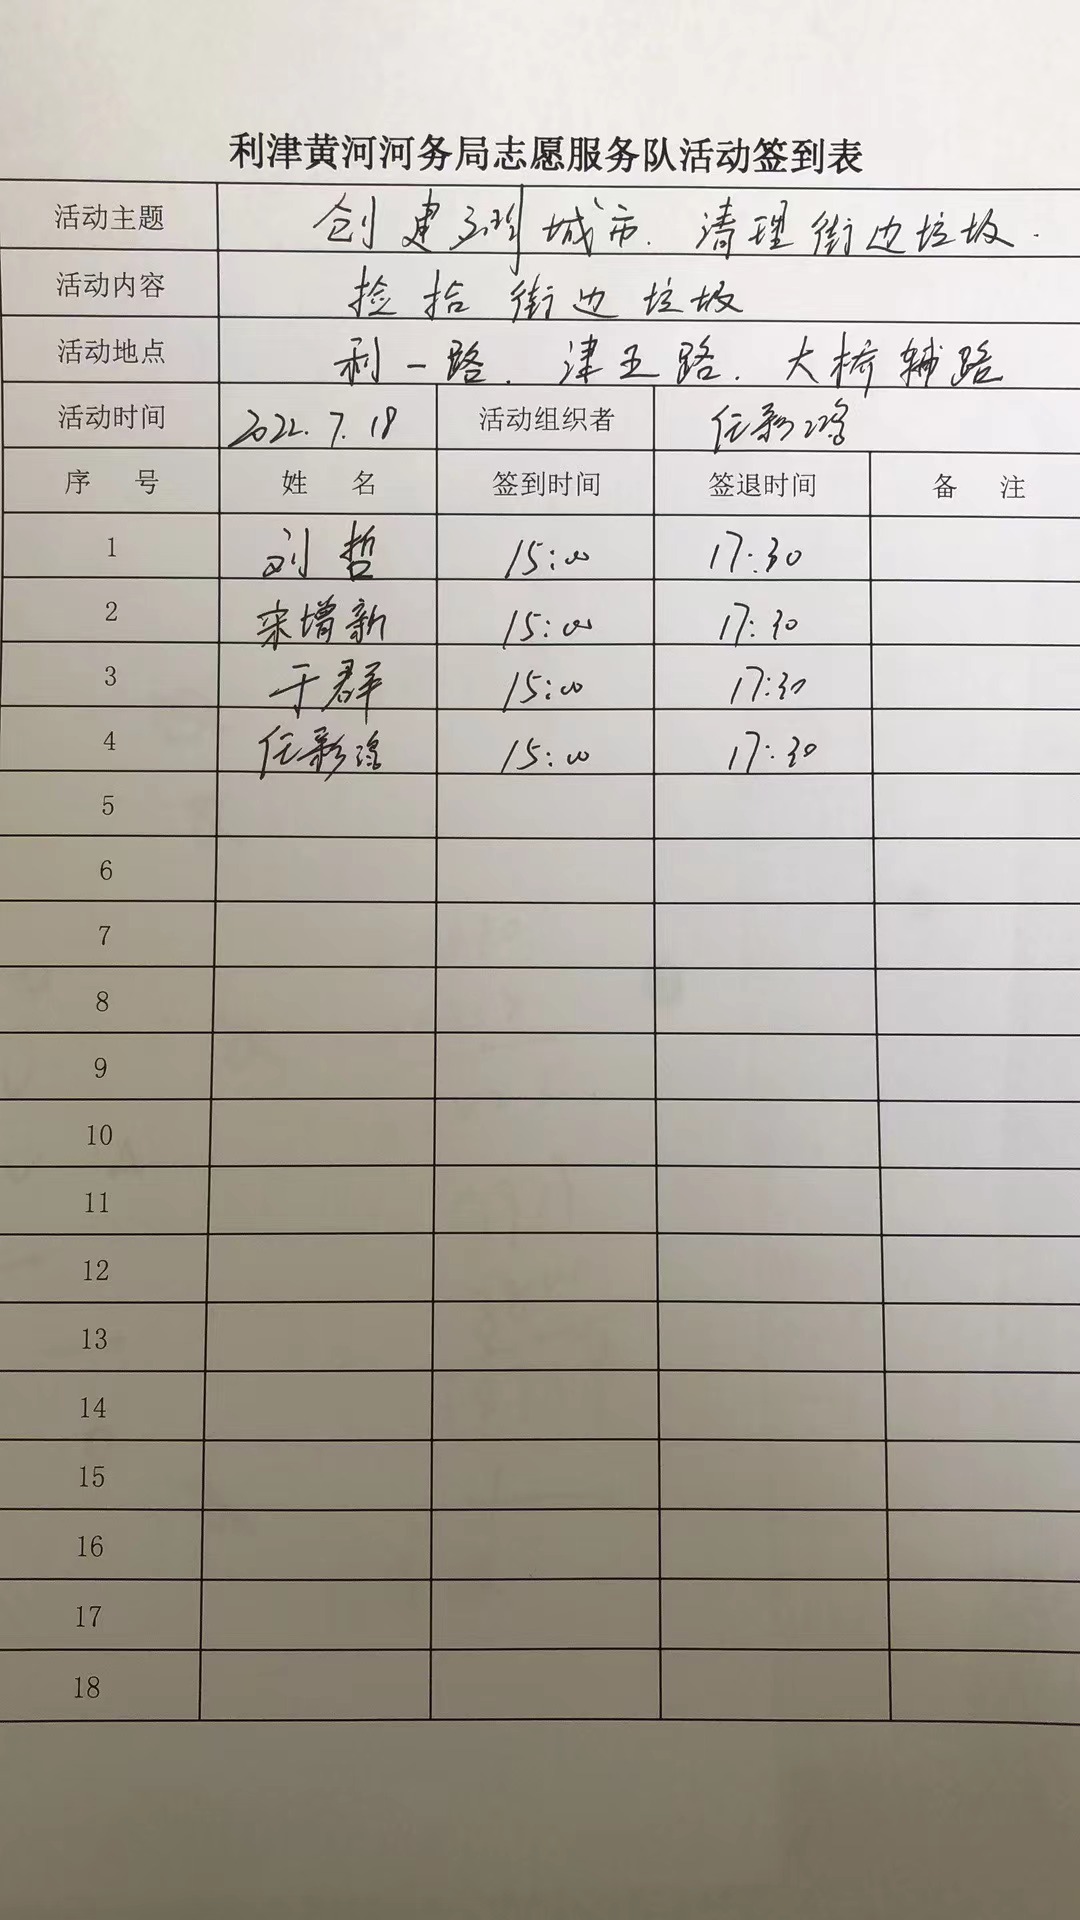 利津黄河河务局志愿服务队活动签到表
活动主题 创建 城市、清理街边垃圾.
活动内容 捡拾街边垃圾
活动地点 利一路、津五路、大桥辅路
活动时间 2022.7.18 活动组织者 任彩鸿
序 号 姓 名 签到时间 签退时间 备 注
1 刘哲 15:00 17:30
2 宋增新 15:00 17:30
3 于群 15:00 17:30
4 任彩鸿 15:00 17:30
5
6
7
8
9
10
11
12
13
14
15
16
17
18